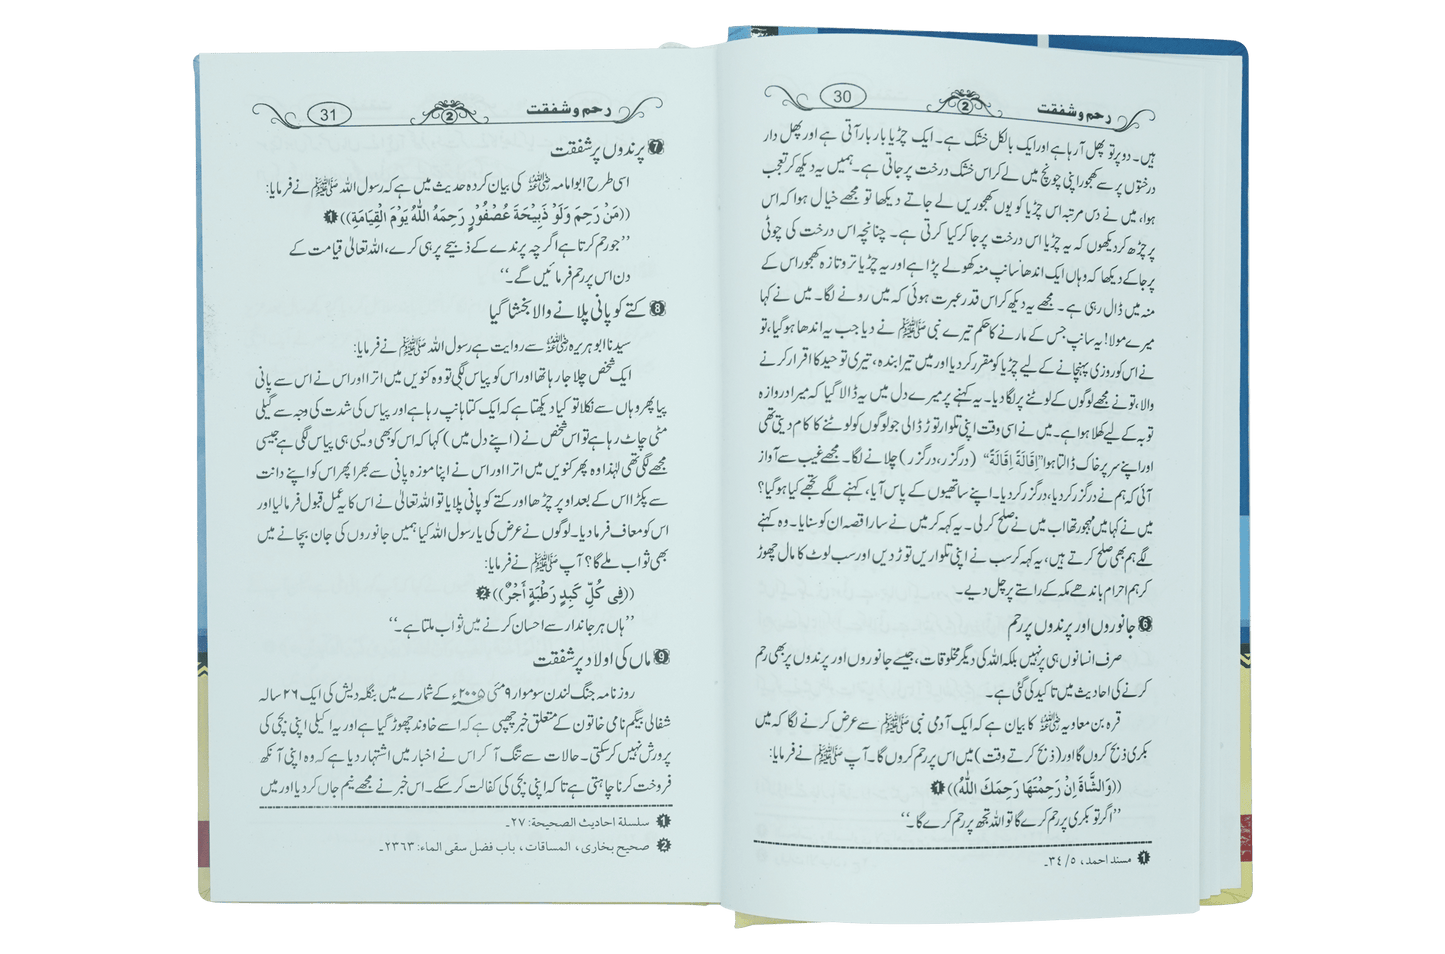 رحم و شفقت 2 30
ہیں۔ دو پر تو پھل آ رہا ہے اور ایک بالکل خشک ہے۔ ایک چڑیا بار بار آتی ہے اور پھل دار
درختوں پر سے کھجور اپنی چونچ میں لے کر اس خشک درخت پر جاتی ہے۔ ہمیں یہ دیکھ کر تعجب
ہوا، میں نے دس مرتبہ اس چڑیا کو یوں کھجوریں لے جاتے دیکھا تو مجھے خیال ہوا کہ اس
پر چڑھ کر دیکھوں کہ یہ چڑیا اس درخت پر جا کر کیا کرتی ہے۔ چنانچہ اس درخت کی چوٹی
پر جا کے دیکھا کہ وہاں ایک اندھا سانپ منہ کھولے پڑا ہے اور یہ چڑیا تر و تازہ کھجور اس کے
منہ میں ڈال رہی ہے۔ مجھے یہ دیکھ کر اس قدر عبرت ہوئی کہ میں رونے لگا۔ میں نے کہا
میرے مولا! یہ سانپ جس کے مارنے کا حکم تیرے نبی ﷺ نے دیا جب یہ اندھا ہو گیا، تو
نے اس کو روزی پہنچانے کے لیے چڑیا کو مقرر کر دیا اور میں تیرا بندہ، تیری توحید کا اقرار کرنے
والا، تو نے مجھے لوگوں کے لوٹنے پر لگا دیا۔ یہ کہنے پر میرے دل میں یہ ڈالا گیا کہ میرا دروازہ
توبہ کے لیے کھلا ہوا ہے۔ میں نے اسی وقت اپنی تلوار توڑ ڈالی جو لوگوں کو لوٹنے کا کام دیتی تھی
اور اپنے سر پر خاک ڈالتا ہوا ”اِقَالَةً اِقَالَةً“ (درگزر، درگزر) چلانے لگا۔ مجھے غیب سے آواز
آئی کہ ہم نے درگزر کر دیا، درگزر کر دیا۔ اپنے ساتھیوں کے پاس آیا، کہنے لگے تجھے کیا ہو گیا؟
میں نے کہا میں مہجور تھا اب میں نے صلح کر لی۔ یہ کہہ کر میں نے سارا قصہ ان کو سنایا۔ وہ کہنے
لگے ہم بھی صلح کرتے ہیں، یہ کہہ کر سب نے اپنی تلواریں توڑ دیں اور سب لوٹ کا مال چھوڑ
کر ہم احرام باندھے مکہ کے راستے پر چل دیے۔
6 جانوروں اور پرندوں پر رحم
صرف انسانوں ہی پر نہیں بلکہ اللہ کی دیگر مخلوقات، جیسے جانوروں اور پرندوں پر بھی رحم
کرنے کی احادیث میں تاکید کی گئی ہے۔
قرہ بن معاویہ ؓ کا بیان ہے کہ ایک آدمی نبی ﷺ سے عرض کرنے لگا کہ میں
بکری ذبح کروں گا اور (ذبح کرتے وقت) میں اس پر رحم کروں گا۔ آپ ﷺ نے فرمایا:
((وَالشَّاةَ اِنْ رَحِمْتَهَا رَحِمَكَ اللّٰهُ)) 1
”اگر تو بکری پر رحم کرے گا تو اللہ تجھ پر رحم کرے گا۔“
1 مسند احمد، ۵/ ۳۴۔
رحم و شفقت 2 31
7 پرندوں پر شفقت
اسی طرح ابو امامہ ؓ کی بیان کردہ حدیث میں ہے کہ رسول اللہ ﷺ نے فرمایا:
((مَنْ رَحِمَ وَلَوْ ذَبِيْحَةَ عُصْفُوْرٍ رَحِمَهُ اللّٰهُ يَوْمَ الْقِيَامَةِ)) 1
”جو رحم کرتا ہے اگرچہ پرندے کے ذبیحے پر ہی کرے، اللہ تعالیٰ قیامت کے
دن اس پر رحم فرمائیں گے۔“
8 کتے کو پانی پلانے والا بخشا گیا
سیدنا ابو ہریرہ ؓ سے روایت ہے رسول اللہ ﷺ نے فرمایا:
ایک شخص چلا جا رہا تھا اور اس کو پیاس لگی تو وہ کنویں میں اترا اور اس نے اس سے پانی
پیا پھر وہاں سے نکلا تو کیا دیکھتا ہے کہ ایک کتا ہانپ رہا ہے اور پیاس کی شدت کی وجہ سے گیلی
مٹی چاٹ رہا ہے تو اس شخص نے (اپنے دل میں) کہا کہ اس کو بھی ویسی ہی پیاس لگی ہے جیسی
مجھے لگی تھی لہٰذا وہ پھر کنویں میں اترا اور اس نے اپنا موزہ پانی سے بھرا پھر اس کو اپنے دانت
سے پکڑا اس کے بعد اوپر چڑھا اور کتے کو پانی پلایا تو اللہ تعالیٰ نے اس کا یہ عمل قبول فرما لیا اور
اس کو معاف فرما دیا۔ لوگوں نے عرض کی یا رسول اللہ کیا ہمیں جانوروں کی جان بچانے میں
بھی ثواب ملے گا؟ آپ ﷺ نے فرمایا:
((فِى كُلِّ كَبِدٍ رَطْبَةٍ أَجْرٌ)) 2
”ہاں ہر جاندار سے احسان کرنے میں ثواب ملتا ہے۔“
9 ماں کی اولاد پر شفقت
روزنامہ جنگ لندن سوموار ۹ مئی ۲۰۰۵ء کے شمارے میں بنگلہ دیش کی ایک ۲۶ سالہ
شفالی بیگم نامی خاتون کے متعلق خبر چھپی ہے کہ اسے خاوند چھوڑ گیا ہے اور یہ اکیلی اپنی بچی کی
پرورش نہیں کر سکتی۔ حالات سے تنگ آ کر اس نے اخبار میں اشتہار دیا ہے کہ وہ اپنی آنکھ
فروخت کرنا چاہتی ہے تاکہ اپنی بچی کی کفالت کر سکے۔ اس خبر نے مجھے نیم جاں کر دیا اور میں
1 سلسلة احاديث الصحيحة: ۲۷۔
2 صحیح بخاری، المساقات، باب فضل سقی الماء: ۲۳۶۳۔